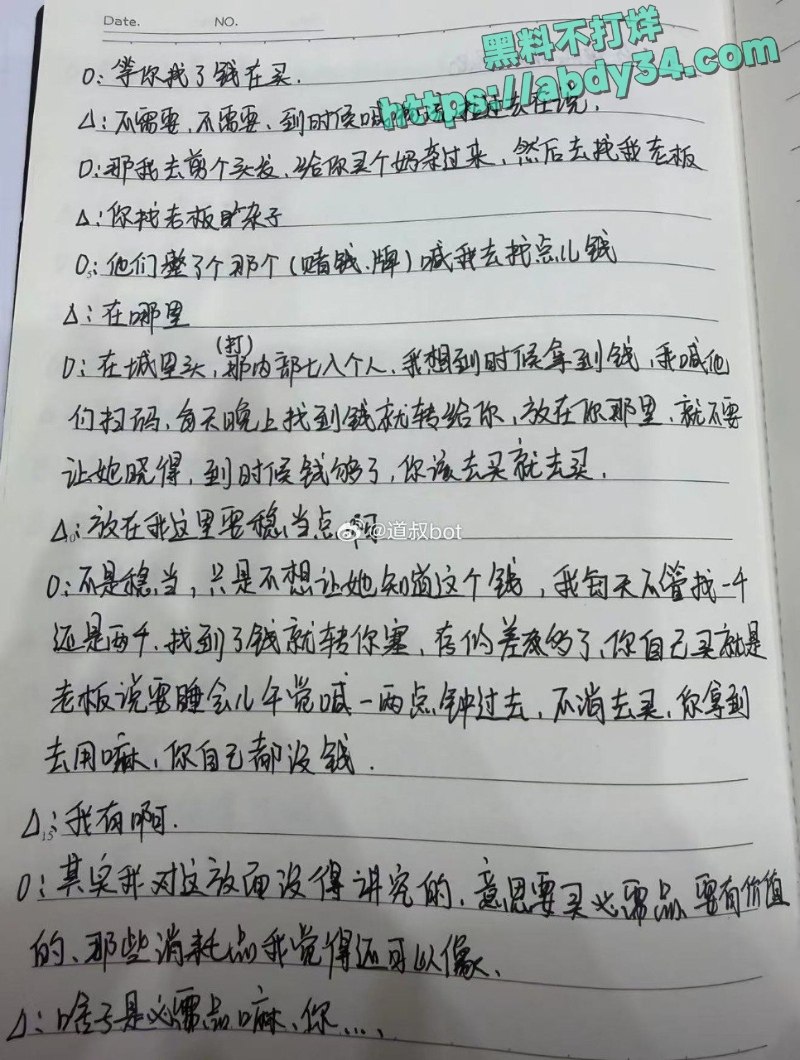 Date. NO.
黑料不打烊
https://abdy34.com
O:等你找了钱在买.
Δ:不需要,不需要、到时候喊 在说,
O:那我去剪个头发、给你买个奶茶过来,然后去找我老板
Δ:你找老板 杂子
O:他们整了个那个(赌钱、牌)喊我去找点儿钱
Δ:在哪里
(打)
O:在城里头,那内部七八个人,我想到时候拿到钱,我喊他
们扫码,每天晚上找到钱就转给你,放在你那里,就不要
让她晓得,到时候钱够了,你该去买就去买.
Δ:放在我这里要稳当点 啊
@道叔bot
O:不是稳当,只是不想让她知道这个钱,我每天不管找一千
还是两千,找到了钱就转你塞,存的差不多了,你自己买就是
老板说要睡会儿午觉喊一两点钟过去,不消去买,你拿到
去用嘛,你自己都没钱.
Δ:我有啊.
15
O:其实我对这放面没得讲究的,意思要买必需品,要有价值
的、那些消耗品我觉得还可以像、
Δ:啥子是必需品嘛、你....